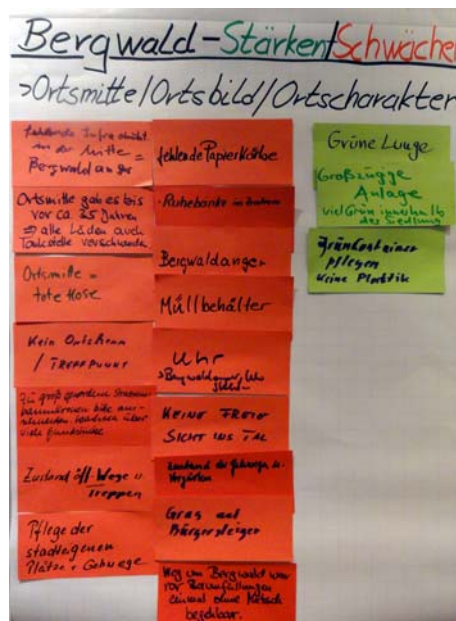 Bergwald-Stärken/Schwächen
>Ortsmitte/Ortsbild/Ortscharakter
fehlende Infrastruktur
in der Mitte =
Bergwaldanger
Ortsmitte gab es bis
vor ca. 25 Jahren
⇒ alle Läden auch
Tankstelle verschwunden
Ortsmitte =
tote Hose
Kein Ortskern
/ TREFFPUNKT
Zu groß gewordene
viele
Zustand öff. Wege u.
Treppen
Pflege der
stadteigenen
Plätze + Gehwege
fehlende Papierkörbe
Ruhebänke im Zentrum
Bergwaldanger
Müllbehälter
Uhr
>Bergwaldanger, Uhr
KEINE FREIE
SICHT INS TAL
Zustand der Gehwege u.
Vorgärten
Gras auf
Bürgersteigen
Weg um Bergwald war
vor Baumfällungen
einmal ohne Matsch
begehbar.
Grüne Lunge
Großzügige
Anlage
viel Grün innerhalb
der Siedlung
Grüncontainer
pflegen
keine Plastik